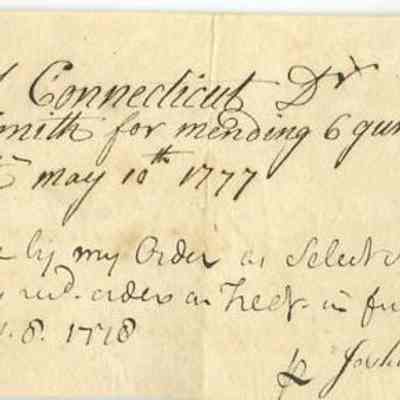 Connecticut Dr
mith for mending 6 gun
may 10th 1777
by my Order as Select
orders on Treasr. in fu
8. 1778